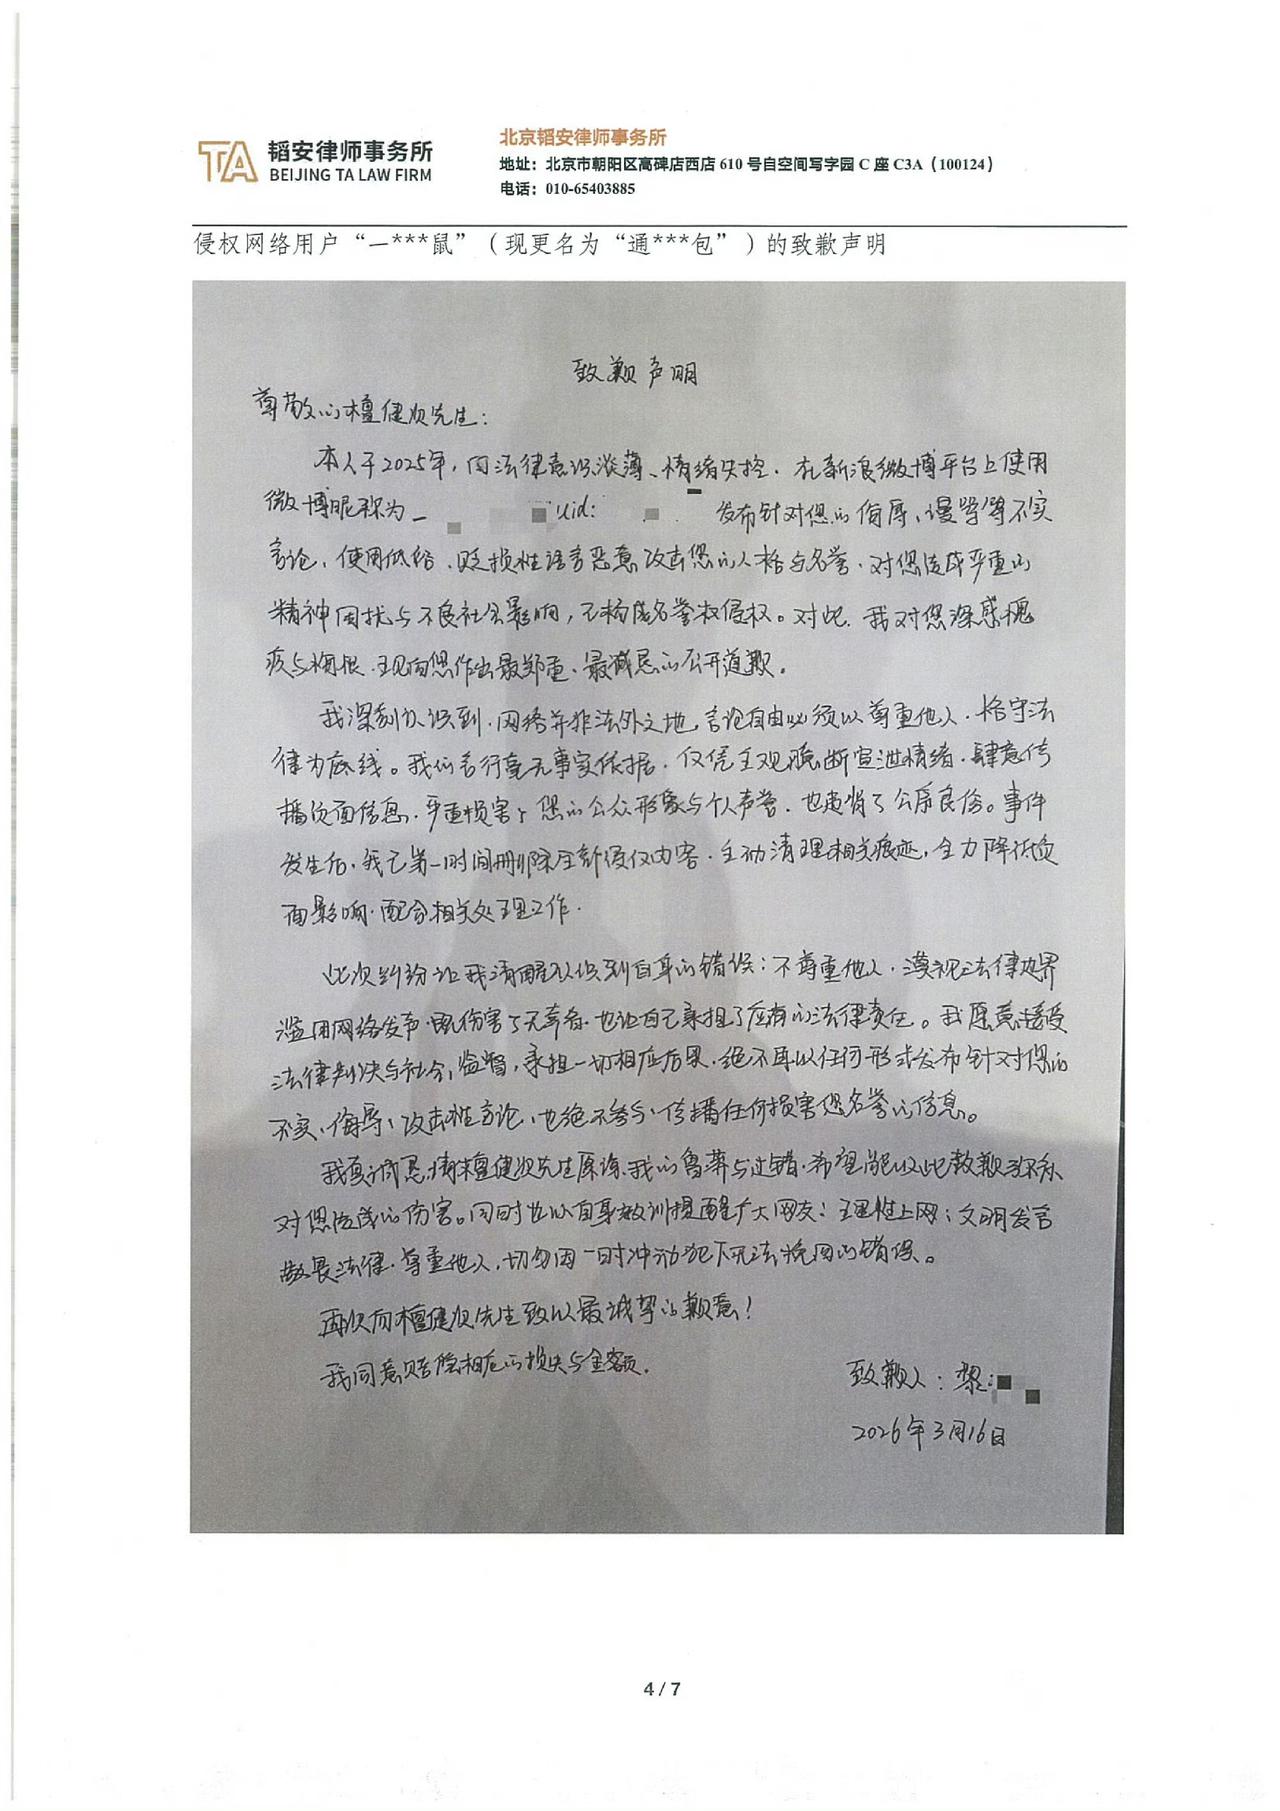 TA 韬安律师事务所
BEIJING TA LAW FIRM
北京韬安律师事务所
地址：北京市朝阳区高碑店西店 610 号自空间写字园 C 座 C3A（100124）
电话：010-65403885
侵权网络用户“一***鼠”（现更名为“通***包”）的致歉声明
致歉声明
尊敬的檀健次先生：
本人于2025年，因法律意识淡薄、情绪失控，在新浪微博平台上使用
微博昵称为 uid: 发布针对您的侮辱、谩骂等不实
言论，使用低俗、贬损性语言恶意攻击您的人格与名誉，对您造成严重的
精神困扰与不良社会影响，已构成名誉权侵权。对此，我对您深感愧
疚与悔恨，现向您作出最郑重、最诚恳的公开道歉。
我深刻认识到，网络并非法外之地，言论自由必须以尊重他人，恪守法
律为底线。我的言行毫无事实依据，仅凭主观臆断宣泄情绪，肆意传
播负面信息，严重损害了您的公众形象与个人声誉，也违背了公序良俗。事件
发生后，我已第一时间删除全部侵权内容，主动清理相关痕迹，全力降低负
面影响，配合相关处理工作。
此次纠纷让我清醒认识到自身的错误：不尊重他人，漠视法律边界
滥用网络发声，既伤害了无辜者，也让自己承担了应有的法律责任。我愿意接受
法律判决与社会监督，承担一切相应后果，绝不再以任何形式发布针对您的
不实、侮辱、攻击性言论，也绝不参与、传播任何损害您名誉的信息。
我真诚恳请檀健次先生原谅我的鲁莽与过错，希望能以此致歉弥补
对您造成的伤害。同时也以自身教训提醒广大网友：理性上网，文明发言
敬畏法律，尊重他人，切勿因一时冲动犯下无法挽回的错误。
再次向檀健次先生致以最诚挚的歉意！
我同意赔偿相应的损失与金额。
致歉人：黎
2026年3月16日
4 / 7